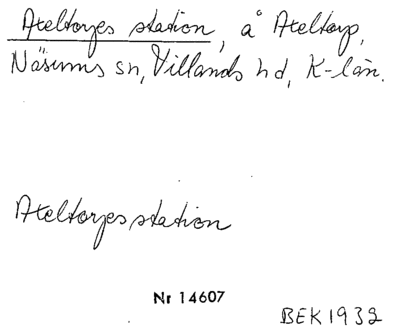 Axeltorps station, å Axeltorp,
Näsums sn, Villands hd, K-län.
Axeltorps station
Nr 14607
BEK 1932